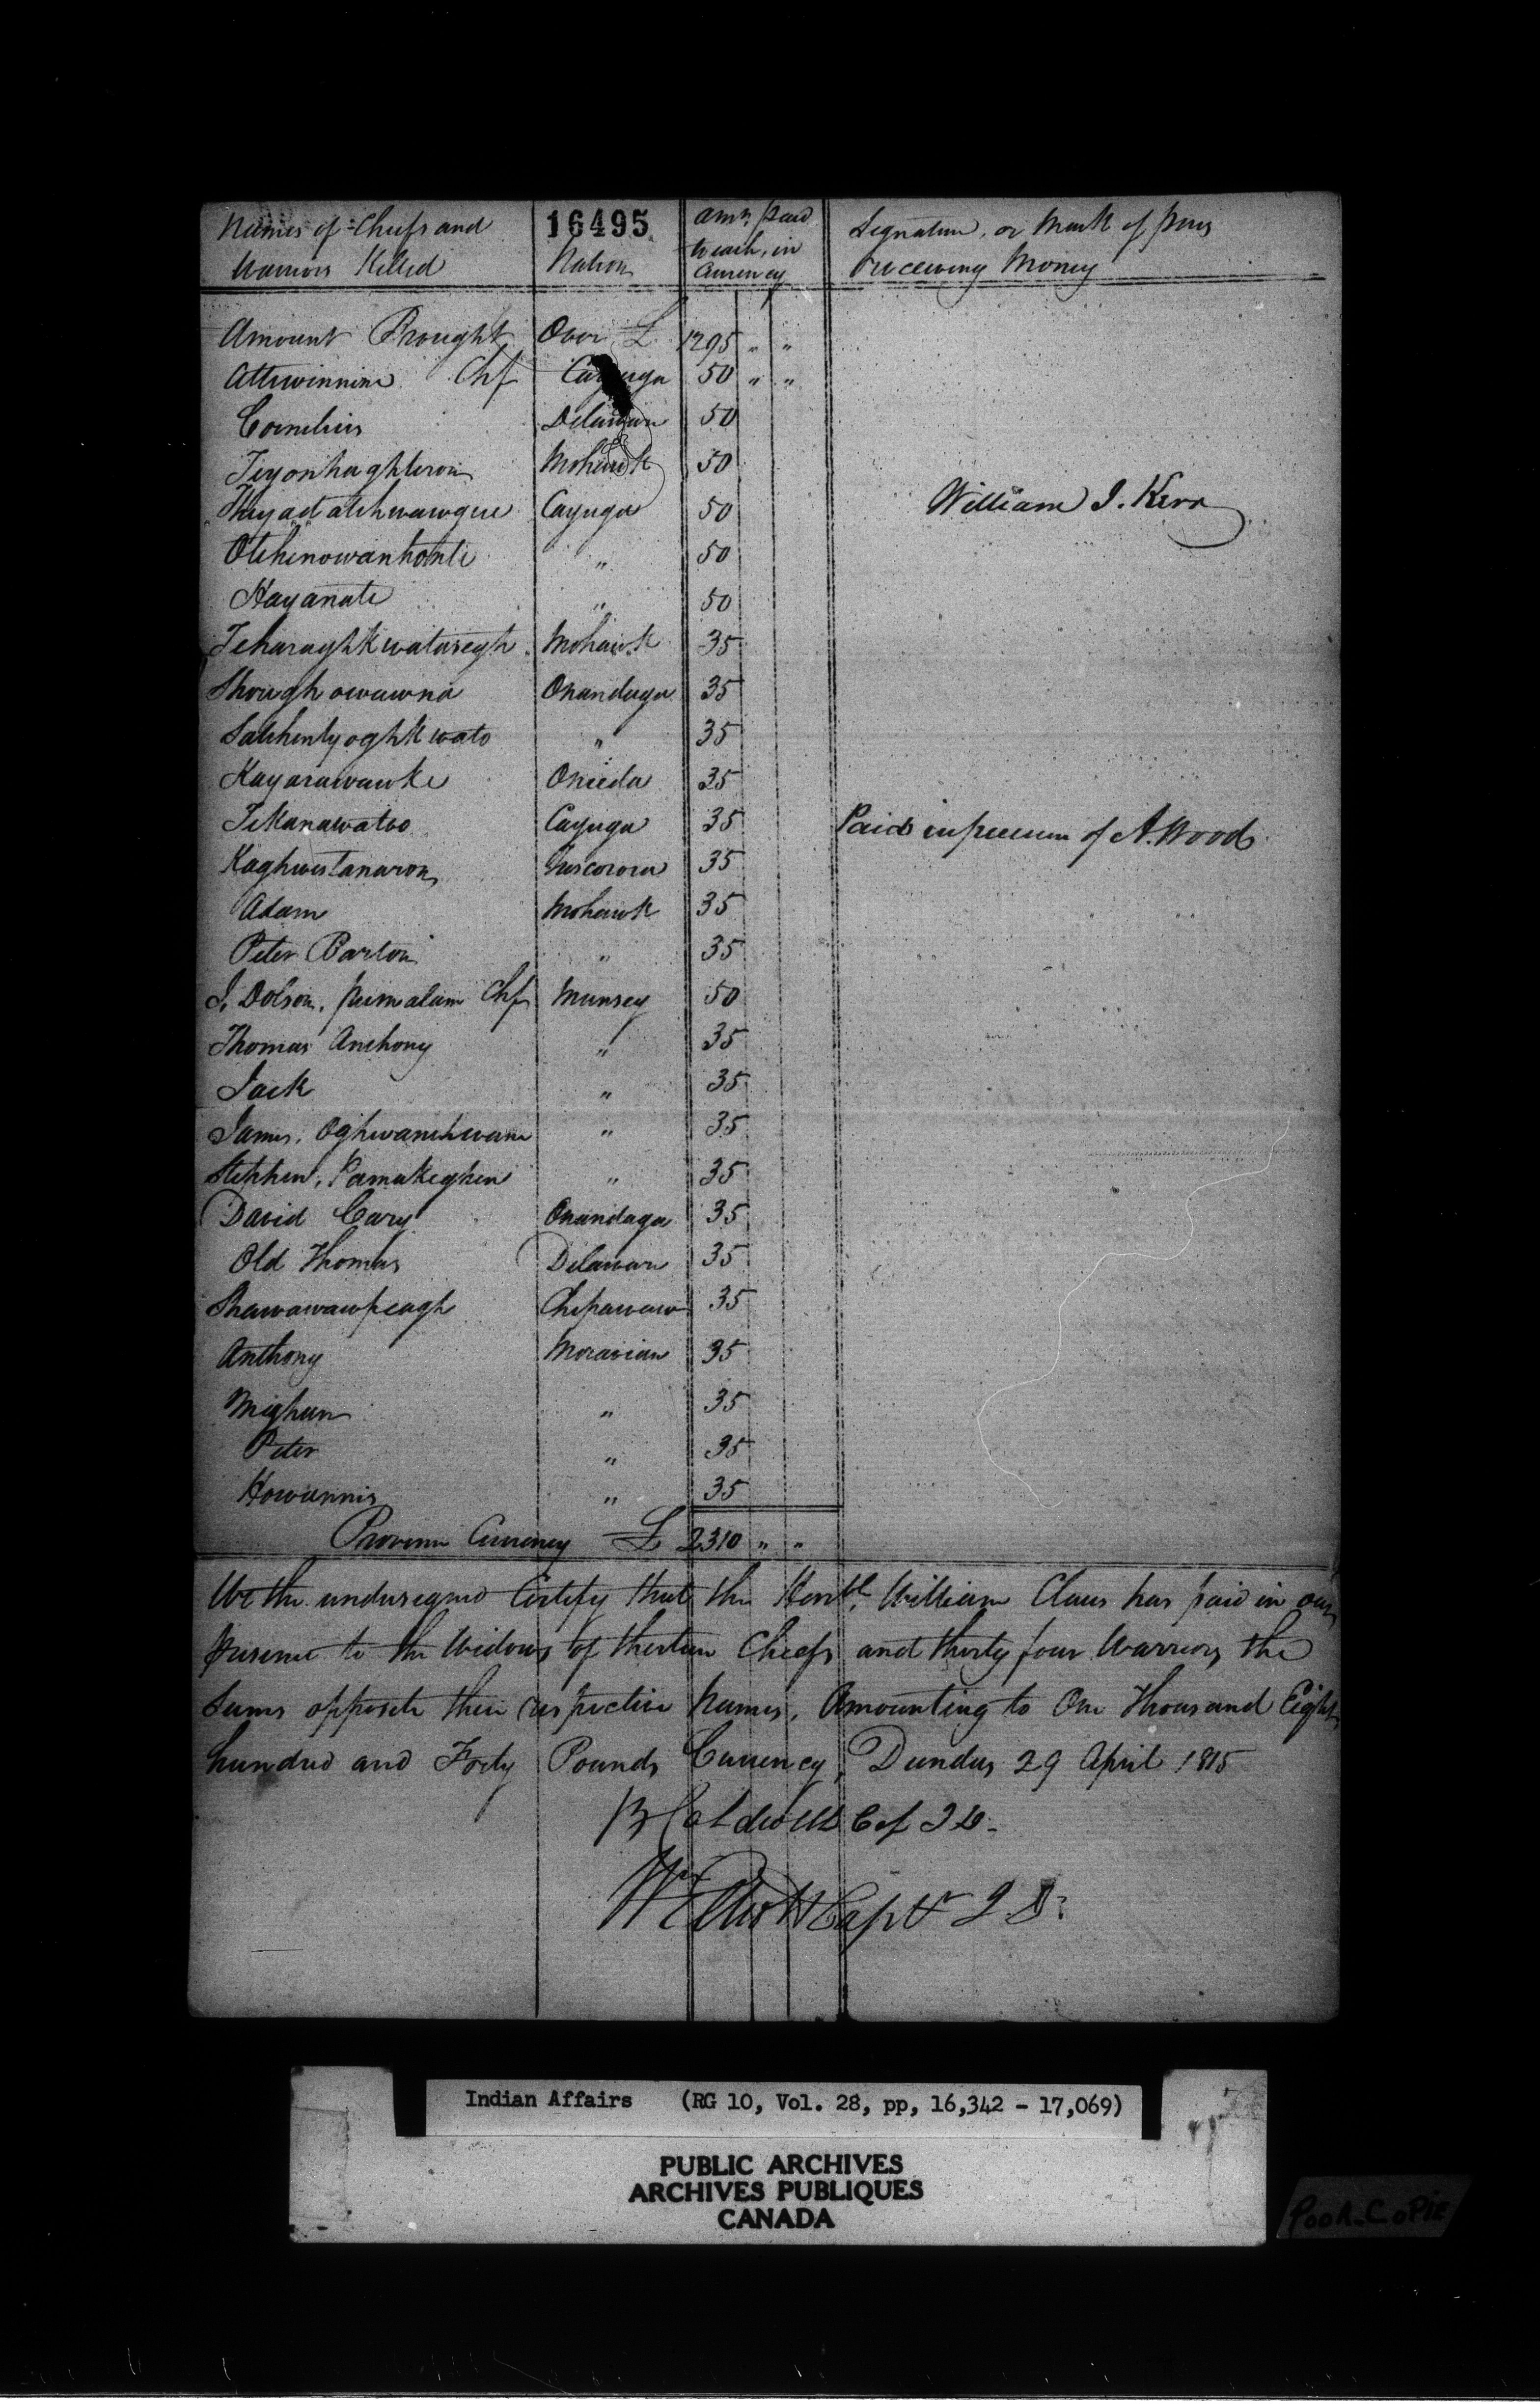 16495
Names of Chiefs and Warriors Killed | Nation | Amt. paid to each, in Currency | Signature, or Mark of pers receiving Money
Amount Brought Over £ 1295 " "
Attewinnine Chf Cayuga 50 " "
Cornelius Delaware 50
Teyonhaghteron Mohawk 50
Thayadatehwawque Cayuga 50
William J. Kerr
Otehenowanhonte " 50
Hayanate " 50
Teharaghkwatasegh Mohawk 35
Shoughowawna Onandaga 35
Satehentyoghkwato " 35
Kayarawawke Onieda 35
Tekanawatoo Cayuga 35
Paid in presence of A. Wood
Kaghwistanaron Tuscorora 35
Adam Mohawk 35
Peter Barton " 35
J. Dolson, pumalum Chf Munsey 50
Thomas Anthony " 35
Jack " 35
James, Oghwanchwam " 35
Stephen, Pamakeghen " 35
David Cary Onandaga 35
Old Thomas Delaware 35
Shawawawpeagh Chipawaw 35
Anthony Moravian 35
Meghun " 35
Peter " 35
Howannis " 35
Province Currency £ 2310 " "
We the undersigned Certify that the Honble. William Claus has paid in our
presence to the Widows of thirteen Chiefs and thirty four Warriors the
Sums opposite their respective Names, Amounting to One Thousand Eight
hundred and Forty Pounds Currency, Dundas 29 April 1815
B Caldwell Cap I D.
Wm Elliott Capt I D.
Indian Affairs (RG 10, Vol. 28, pp, 16,342 - 17,069)
PUBLIC ARCHIVES
ARCHIVES PUBLIQUES
CANADA
Poor-Copie